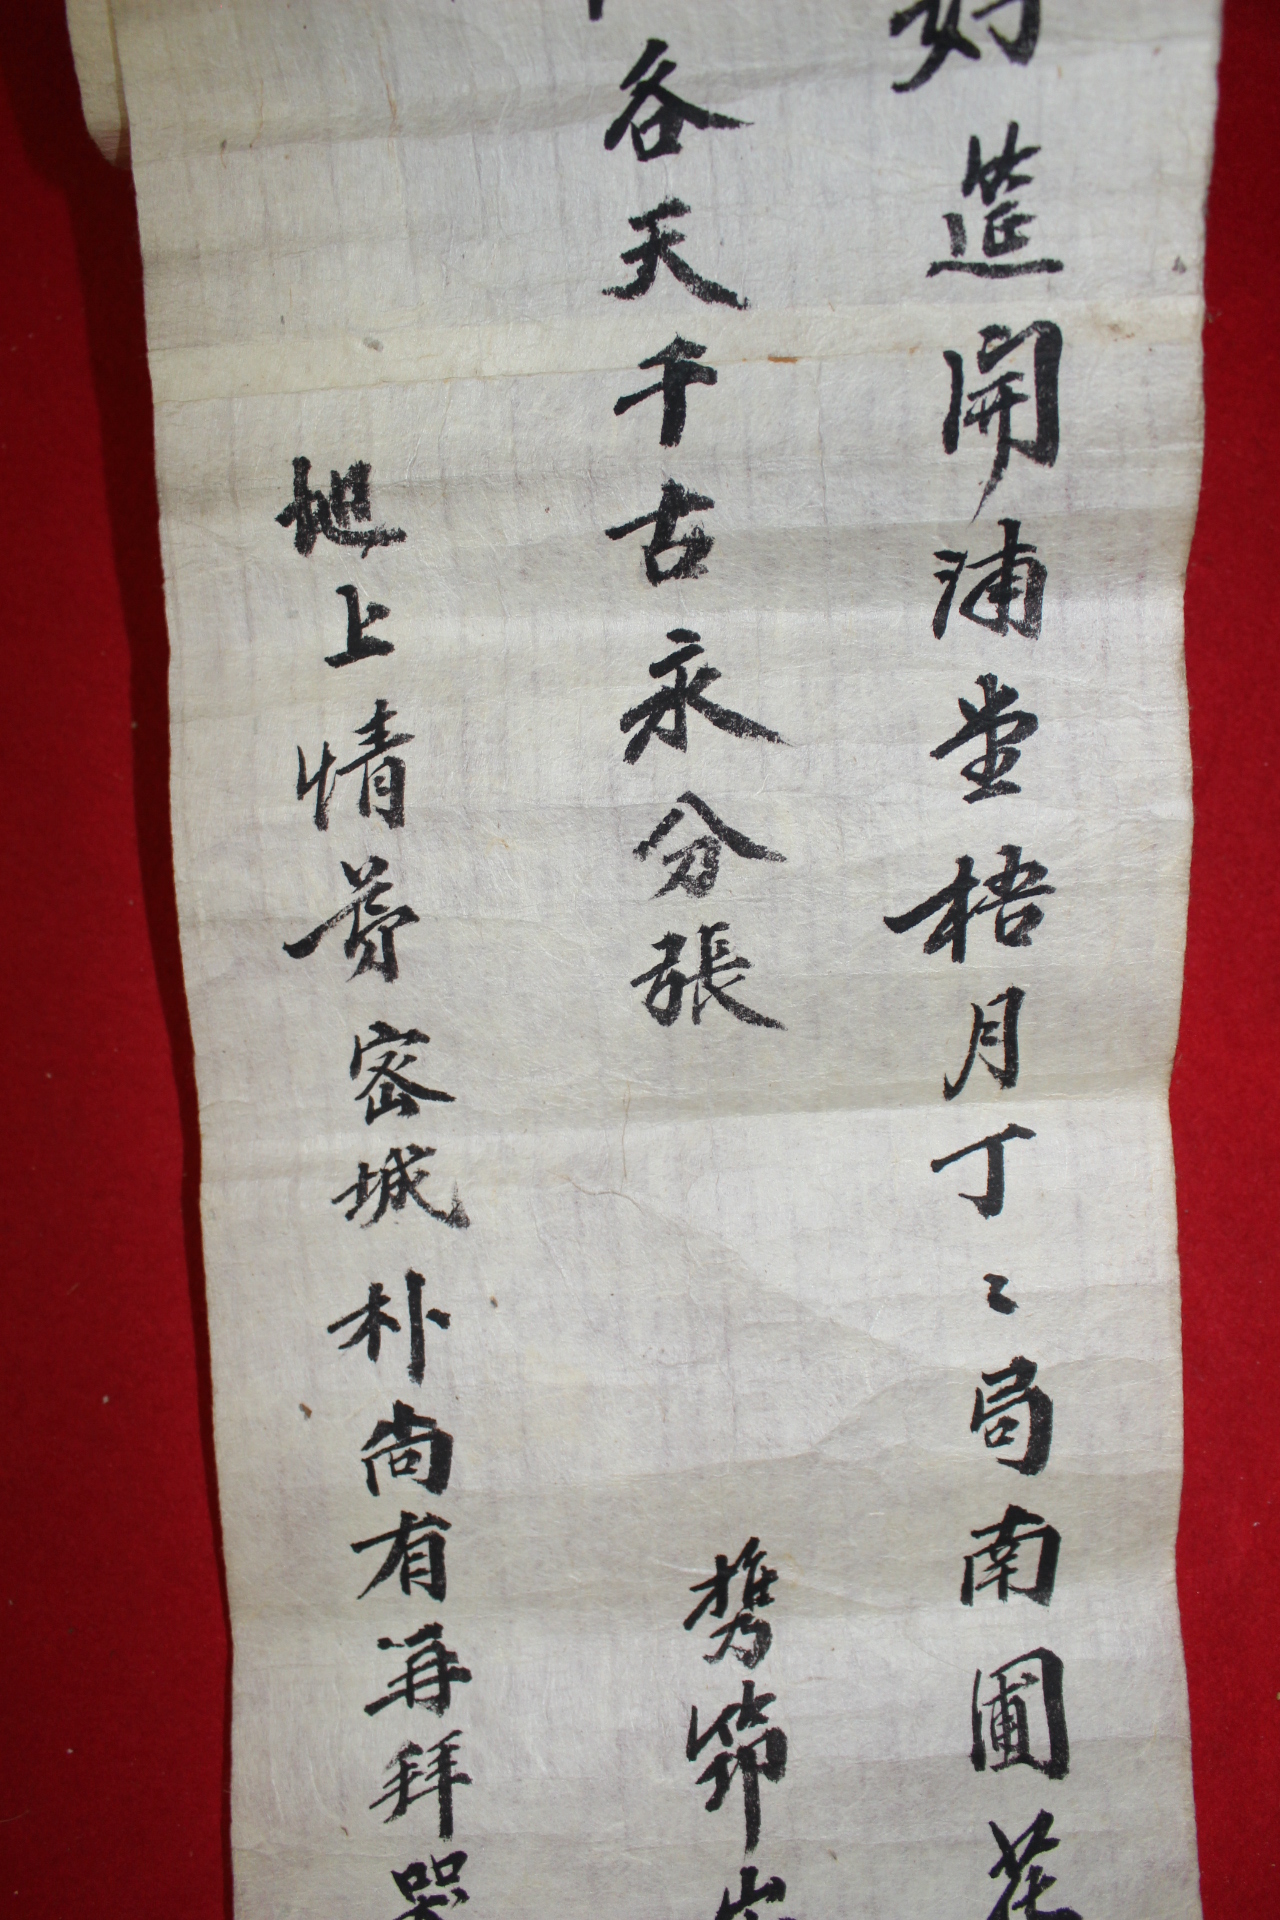 好筵開浦堂梧月丁〻局南圃花
各天千古永分張
携筇
地上情誼密城朴尙有再拜哭